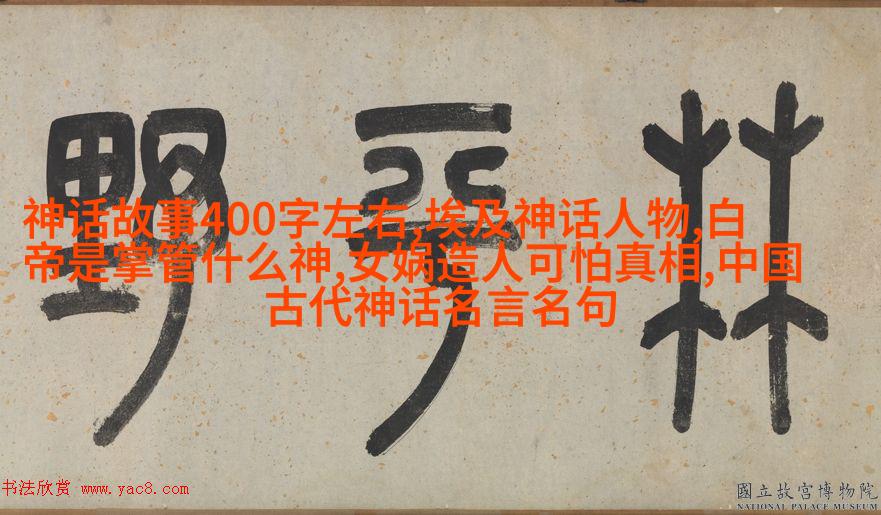 林平野
神话故事400字左右,埃及神话人物,白
帝是掌管什么神,女娲造人可怕真相,中国
古代神话名言名句
书法欣赏 www.yac8.com
國立故宮博物院
NATIONAL PALACE MUSEUM